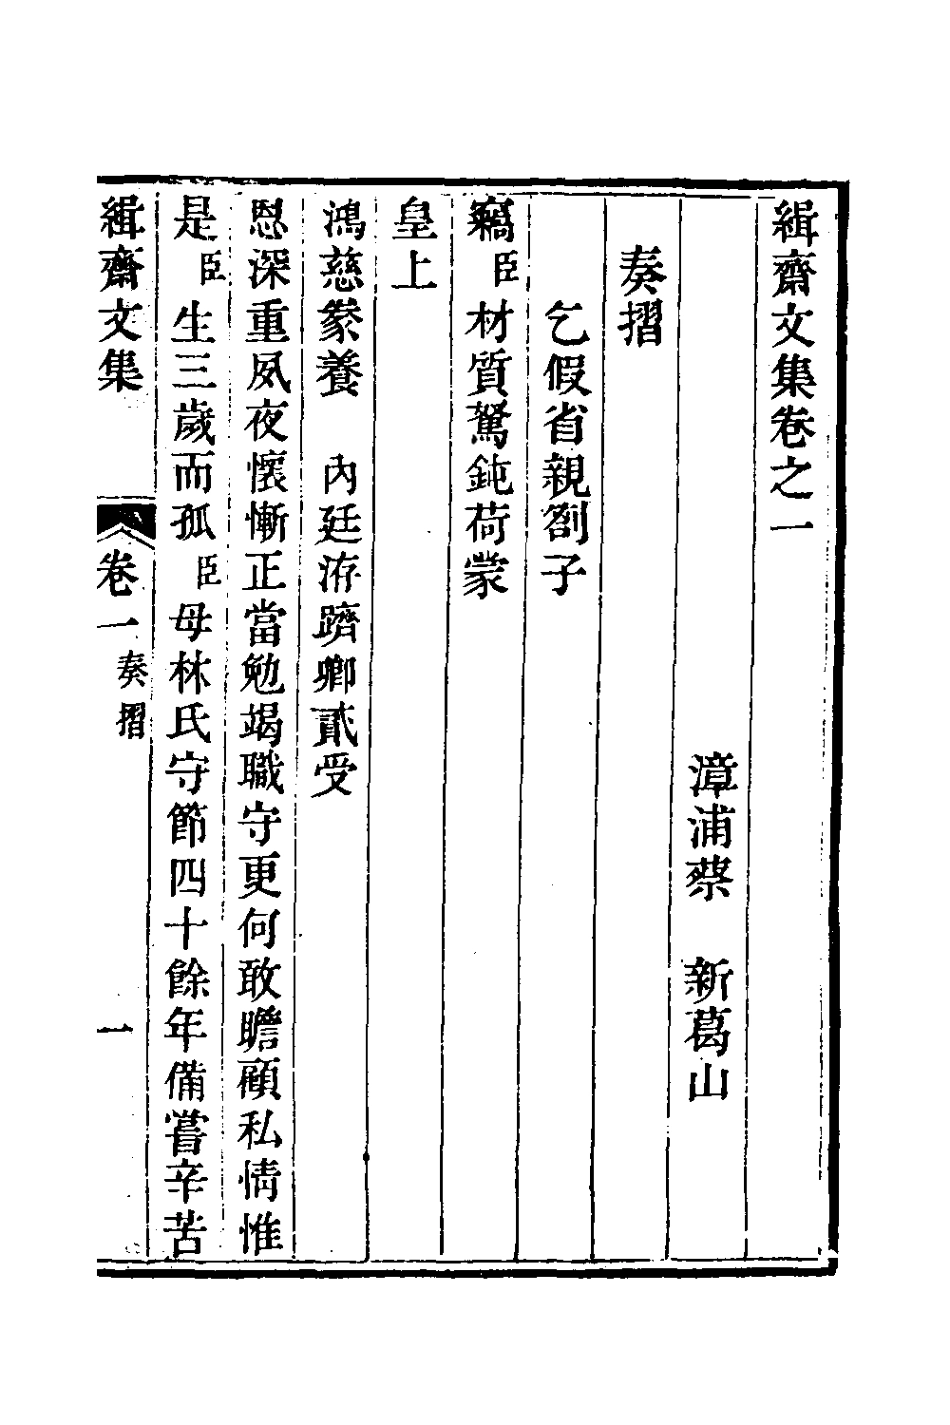 緝齋文集卷之一
漳浦蔡　新葛山
奏摺
乞假省親劄子
竊臣材質駑鈍荷蒙
皇上
鴻慈豢養　內廷洊躋卿貳受
恩深重夙夜懷慚正當勉竭職守更何敢瞻顧私情惟
是臣生三歲而孤臣母林氏守節四十餘年備嘗辛苦
緝齋文集　卷一奏摺　一